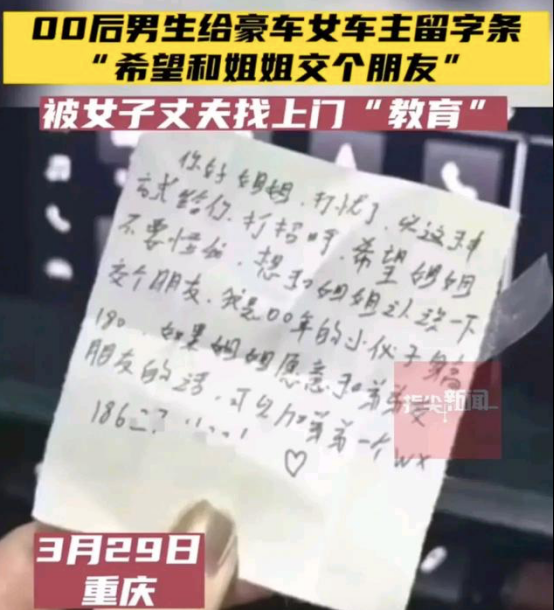 00后男生给豪车女车主留字条
“希望和姐姐交个朋友”
被女子丈夫找上门“教育”
你好姐姐，打扰了，以这种
方式给你打招呼，希望姐姐
不要怪我，想和姐姐认识一下
交个朋友，我是00年的小伙子身高
180，如果姐姐愿意和弟弟交
朋友的话，可以加弟弟一个wx
186
指尖新闻
3月29日
重庆